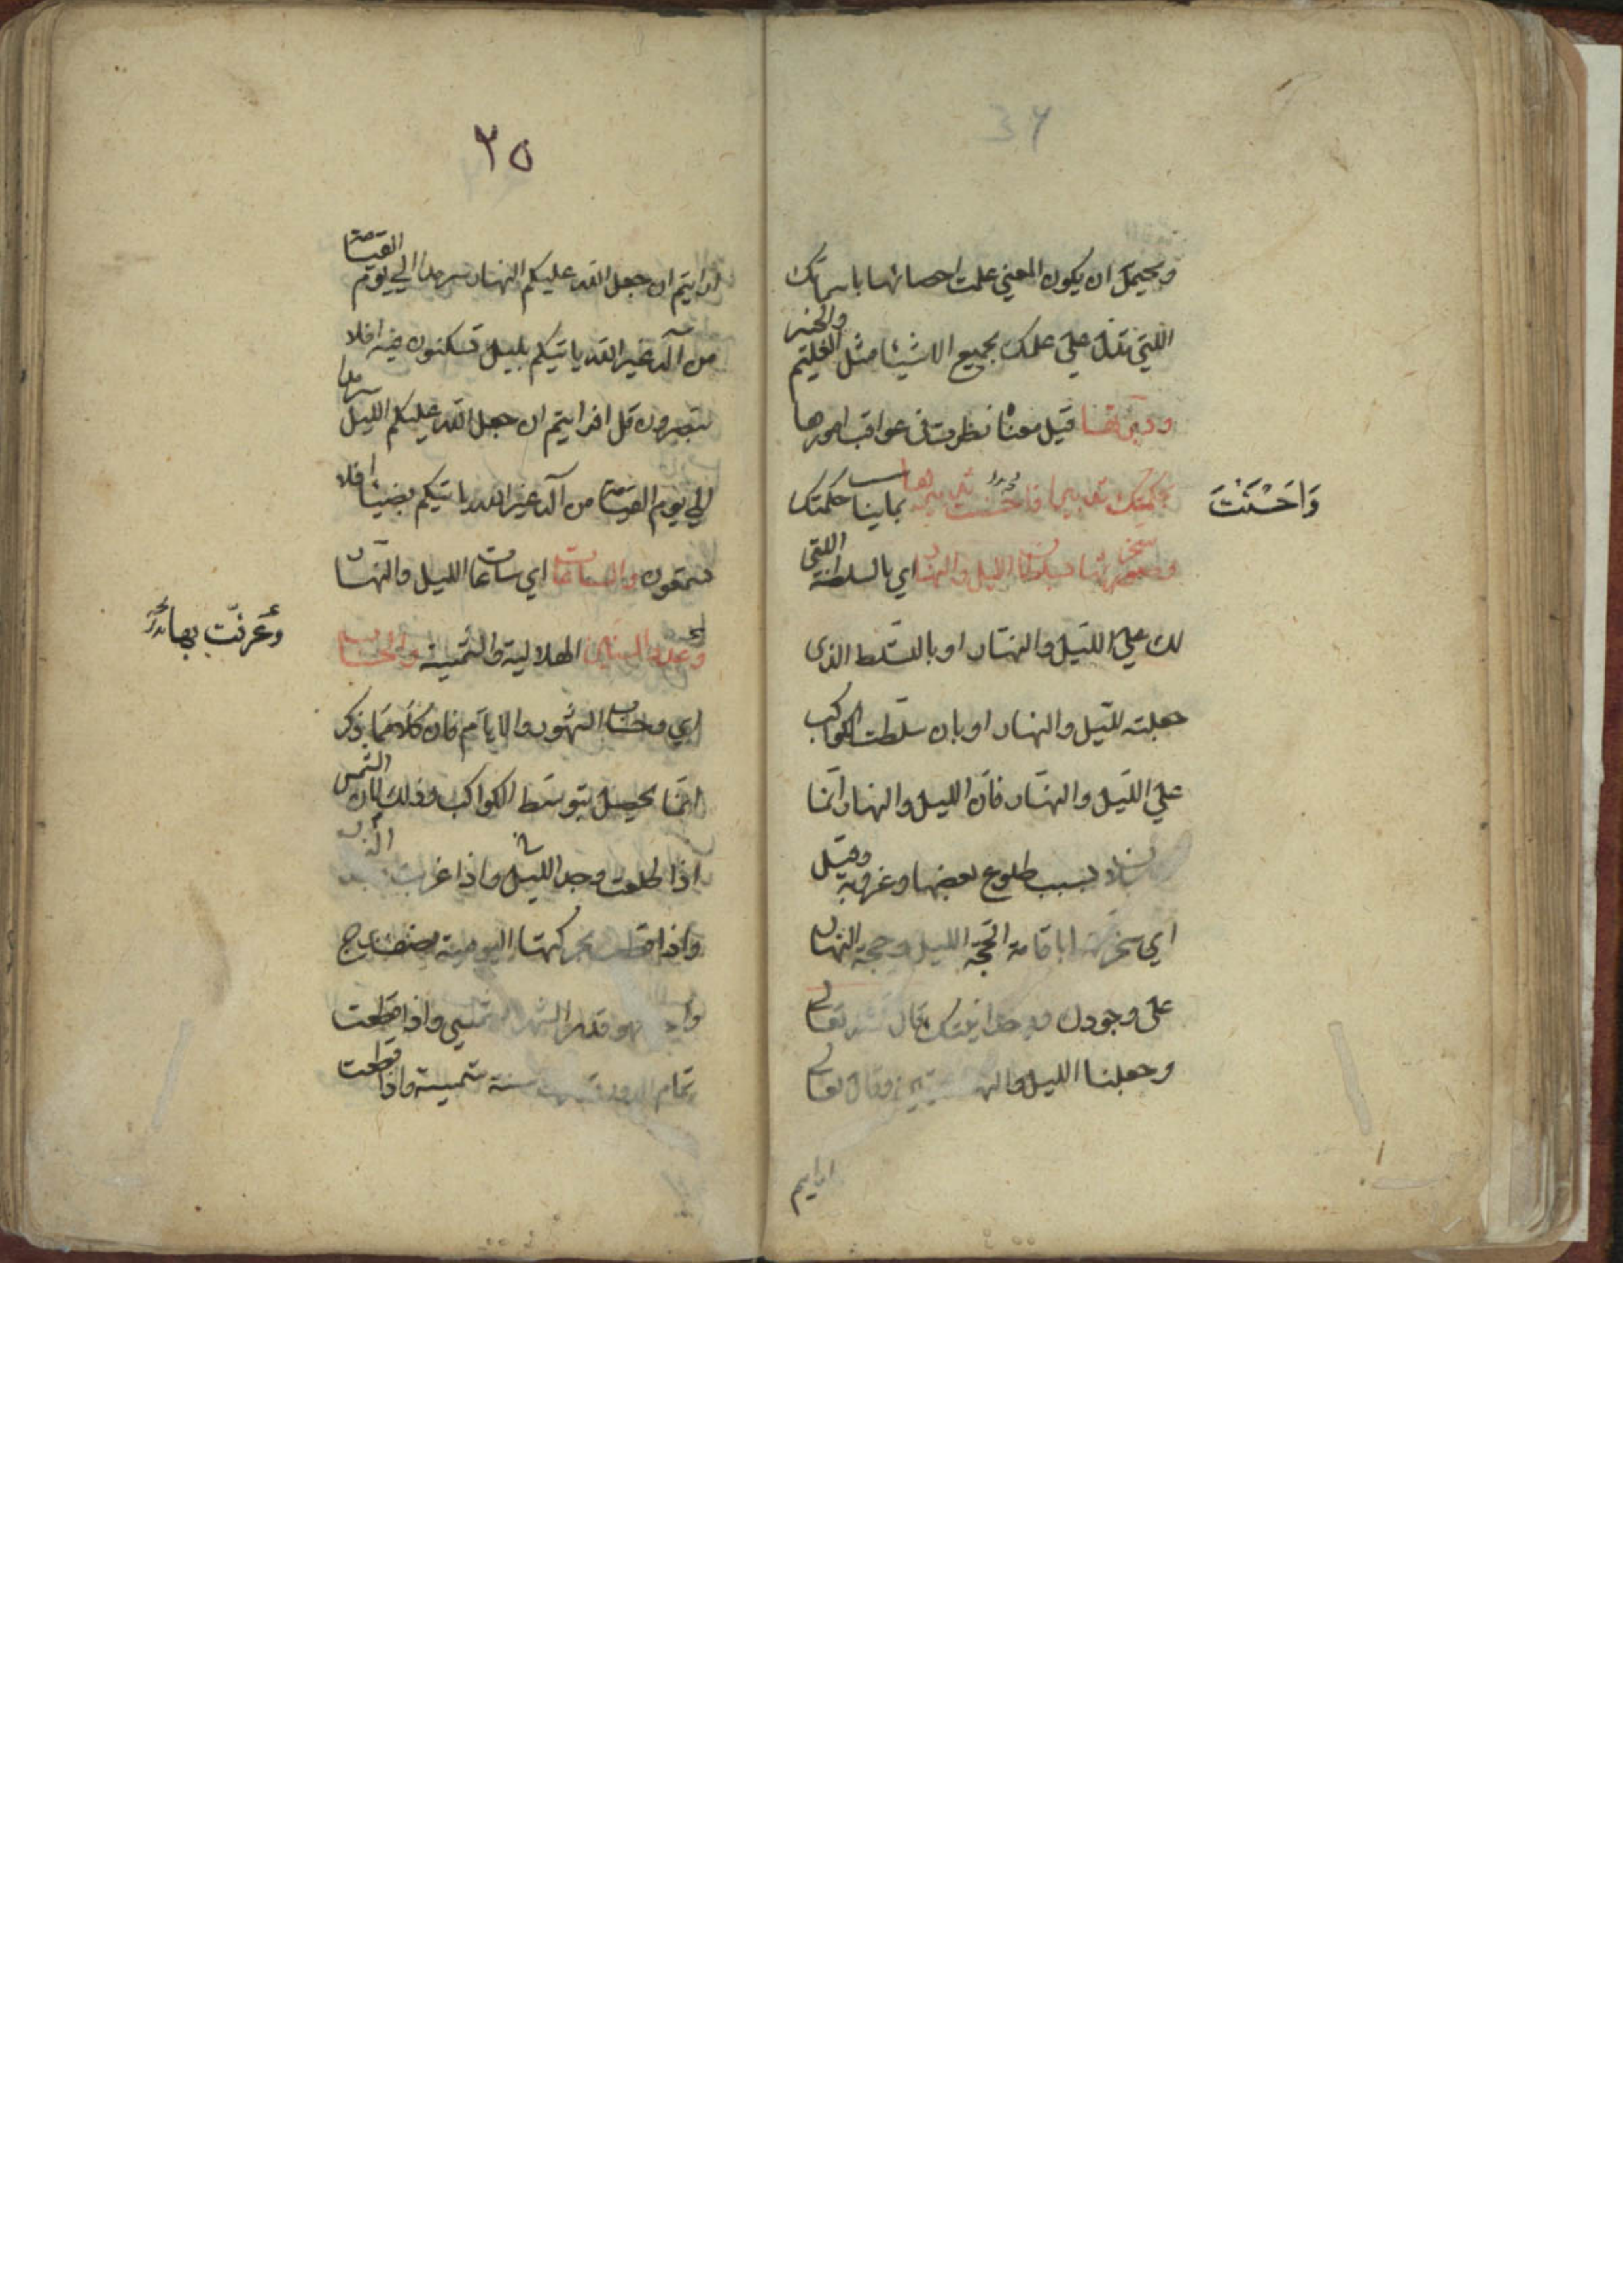 36
ويحتمل ان يكون المعني علمت احصائها باسمائك
اللتي تدل علي علمك بجميع الاشيئا مثل العليم والخبير
ودبرتها قيل معناه نظرت في عواقب امورها
بحكمتك تدبيرا فاحسنت تدبيرها بماينا حكمتك
وَاَحْسَنْتَ
وسخرتها بسلطان الليل والنهار اي بالسلطنة اللتي
لك علي الليل والنهار او بالتسلط الذي
جعلته لليل والنهار او بان سلطت الكواكب
علي الليل والنهار فان الليل والنهار انما
بسبب طلوع بعضها وغروبه وقيل
اي سخرتها باقامة الحجة الليل وحجة النهار
على وجودك ووحدانيتك كما قال تعالي
وجعلنا الليل والنهار ايتين وقال تعالي
ارايتم
٢٥
ارايتم ان جعل الله عليكم النهار سرمدا الي يوم القيامة
من اله غير الله ياتيكم بليل تسكنون فيه افلا
تبصرون قل افرايتم ان جعل الله عليكم الليل سرمدا
الي يوم القيامة من اله غير الله ياتيكم بضيئا افلا
تسمعون والساعات اي ساعات الليل والنهار
وعدد السنين الهلالية والشمسية والحساب
وَعَرَّفْتَ بها
اي وحساب الشهور والايام فان كلا مما ذكر
انما يحصل بتوسط الكواكب وذلك لان الشمس
اذا طلعت وجد الليل واذا غربت
واذا قطعت بحركتها اليومية نصف
وقدر الشهر الشمسي واذا قطعت
تمام الدور سنة شمسية واذا قطعت